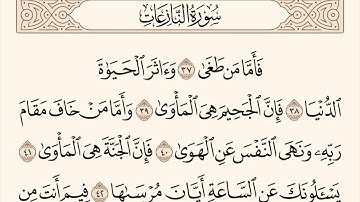 سُورَةُ النَّازِعَاتِ
فَأَمَّا مَن طَغَىٰ ٣٧ وَءَاثَرَ ٱلْحَيَوٰةَ
ٱلدُّنْيَا ٣٨ فَإِنَّ ٱلْجَحِيمَ هِىَ ٱلْمَأْوَىٰ ٣٩ وَأَمَّا مَنْ خَافَ مَقَامَ
رَبِّهِۦ وَنَهَى ٱلنَّفْسَ عَنِ ٱلْهَوَىٰ ٤٠ فَإِنَّ ٱلْجَنَّةَ هِىَ ٱلْمَأْوَىٰ ٤١
يَسْـَٔلُونَكَ عَنِ ٱلسَّاعَةِ أَيَّانَ مُرْسَىٰهَا ٤٢ فِيمَ أَنتَ مِن